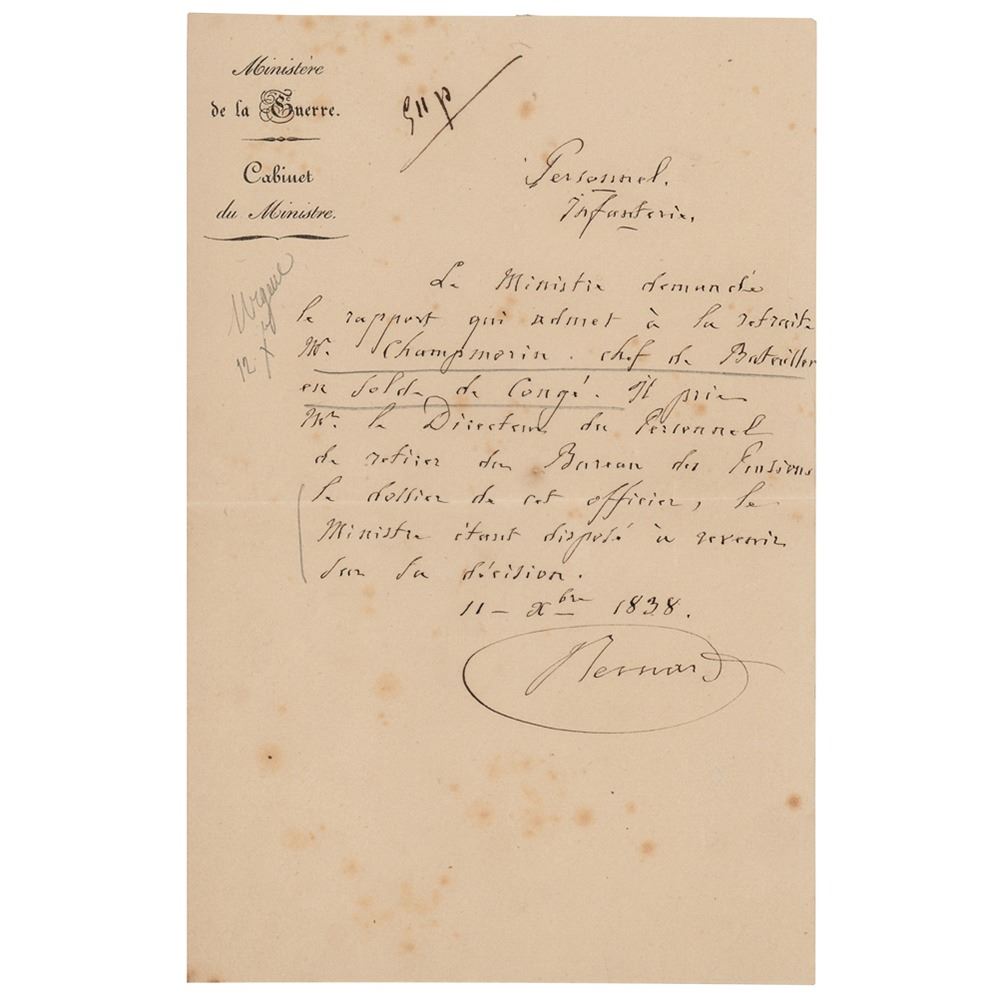 Ministère
de la Guerre.
Cabinet
du Ministre.
Personnel.
Infanterie.
Urgent
12 Xbre
Le Ministre demande
le rapport qui admet à la retraite
Mr. Champmorin. chef de Bataillon
en solde de Congé. Il prie
Mr. le Directeur du Personnel
de retirer du Bureau des Pensions
le dossier de cet officier, le
Ministre étant disposé à revenir
sur sa décision.
11 - Xbre 1838.
Bernard